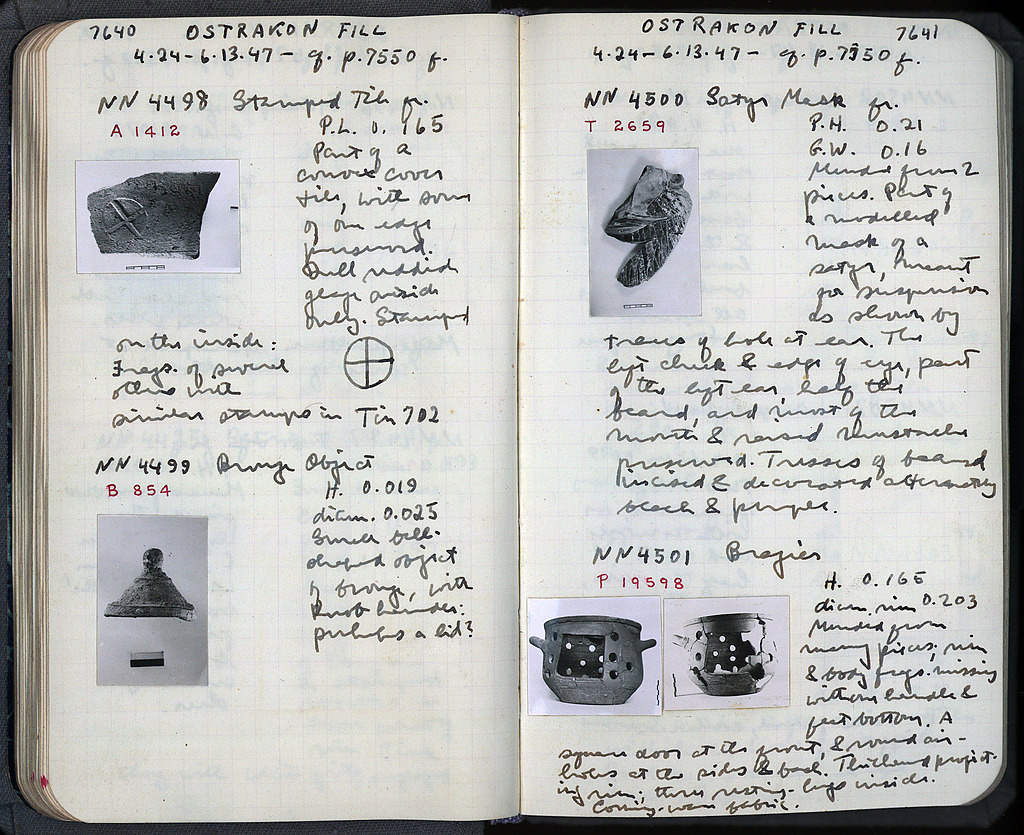 7640 OSTRAKON FILL
4.24-6.13.47 - cf. p. 7550 f.
NN 4498 Stamped Tile fr.
A 1412
P.L. 0.165
Part of a
convex cover
tile, with some
of one edge
preserved.
Dull reddish
glaze outside
only. Stamped
on the inside:
Frags. of several
others with
similar stamps in Tin 702
NN 4499 Bronze Object
B 854
H. 0.019
diam. 0.025
Small bell-
shaped object
of bronze, with
knob handle:
perhaps a lid?
OSTRAKON FILL 7641
4.24-6.13.47 - cf. p. 7550 f.
NN 4500 Satyr Mask fr.
T 2659
P.H. 0.21
G.W. 0.16
Mended from 2
pieces. Part of
a modelled
mask of a
satyr, meant
for suspension
as shown by
trace of hole at ear. The
left cheek & edge of eye, part
of the left ear, half the
beard, and most of the
mouth & raised mustache
preserved. Tresses of beard
incised & decorated alternately
black & purple.
NN 4501 Brazier
P 19598
H. 0.165
diam. rim 0.203
Mended from
many pieces, rim
& body frags. missing
without handle &
feet bottom. A
square door at the front, & round air-
holes at the sides & back. Thickened project-
ing rim; three resting-lugs inside.
Coarse-ware fabric.